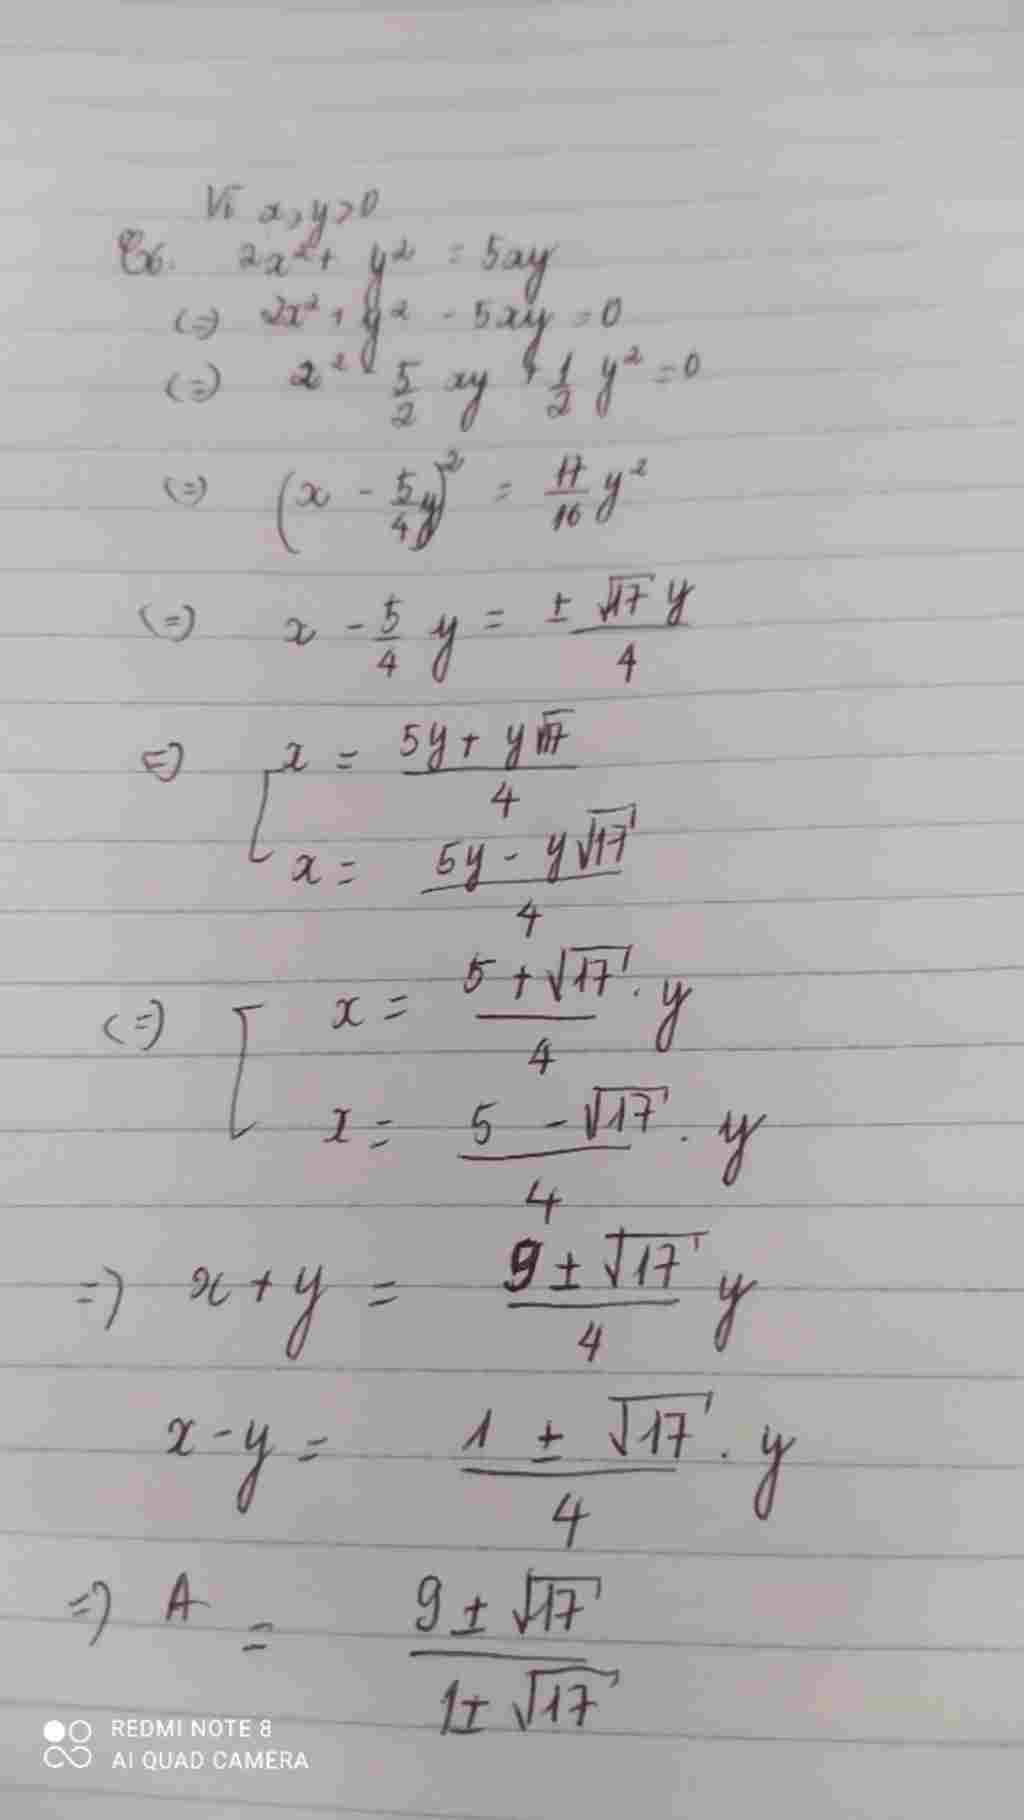 Vì x, y > 0
Có. 2x² + y² = 5xy
(=) 2x² + y² - 5xy = 0
(=) x² - 5/2 xy + 1/2 y² = 0
(=) (x - 5/4 y)² = 17/16 y²
(=) x - 5/4 y = ± √17 y / 4
=) [ x = (5y + y√17) / 4
x = (5y - y√17) / 4
(=) [ x = (5 + √17) / 4 . y
x = (5 - √17) / 4 . y
=) x + y = (9 ± √17) / 4 y
x - y = (1 ± √17) / 4 . y
=) A = (9 ± √17) / (1 ± √17)
REDMI NOTE 8
AI QUAD CAMERA